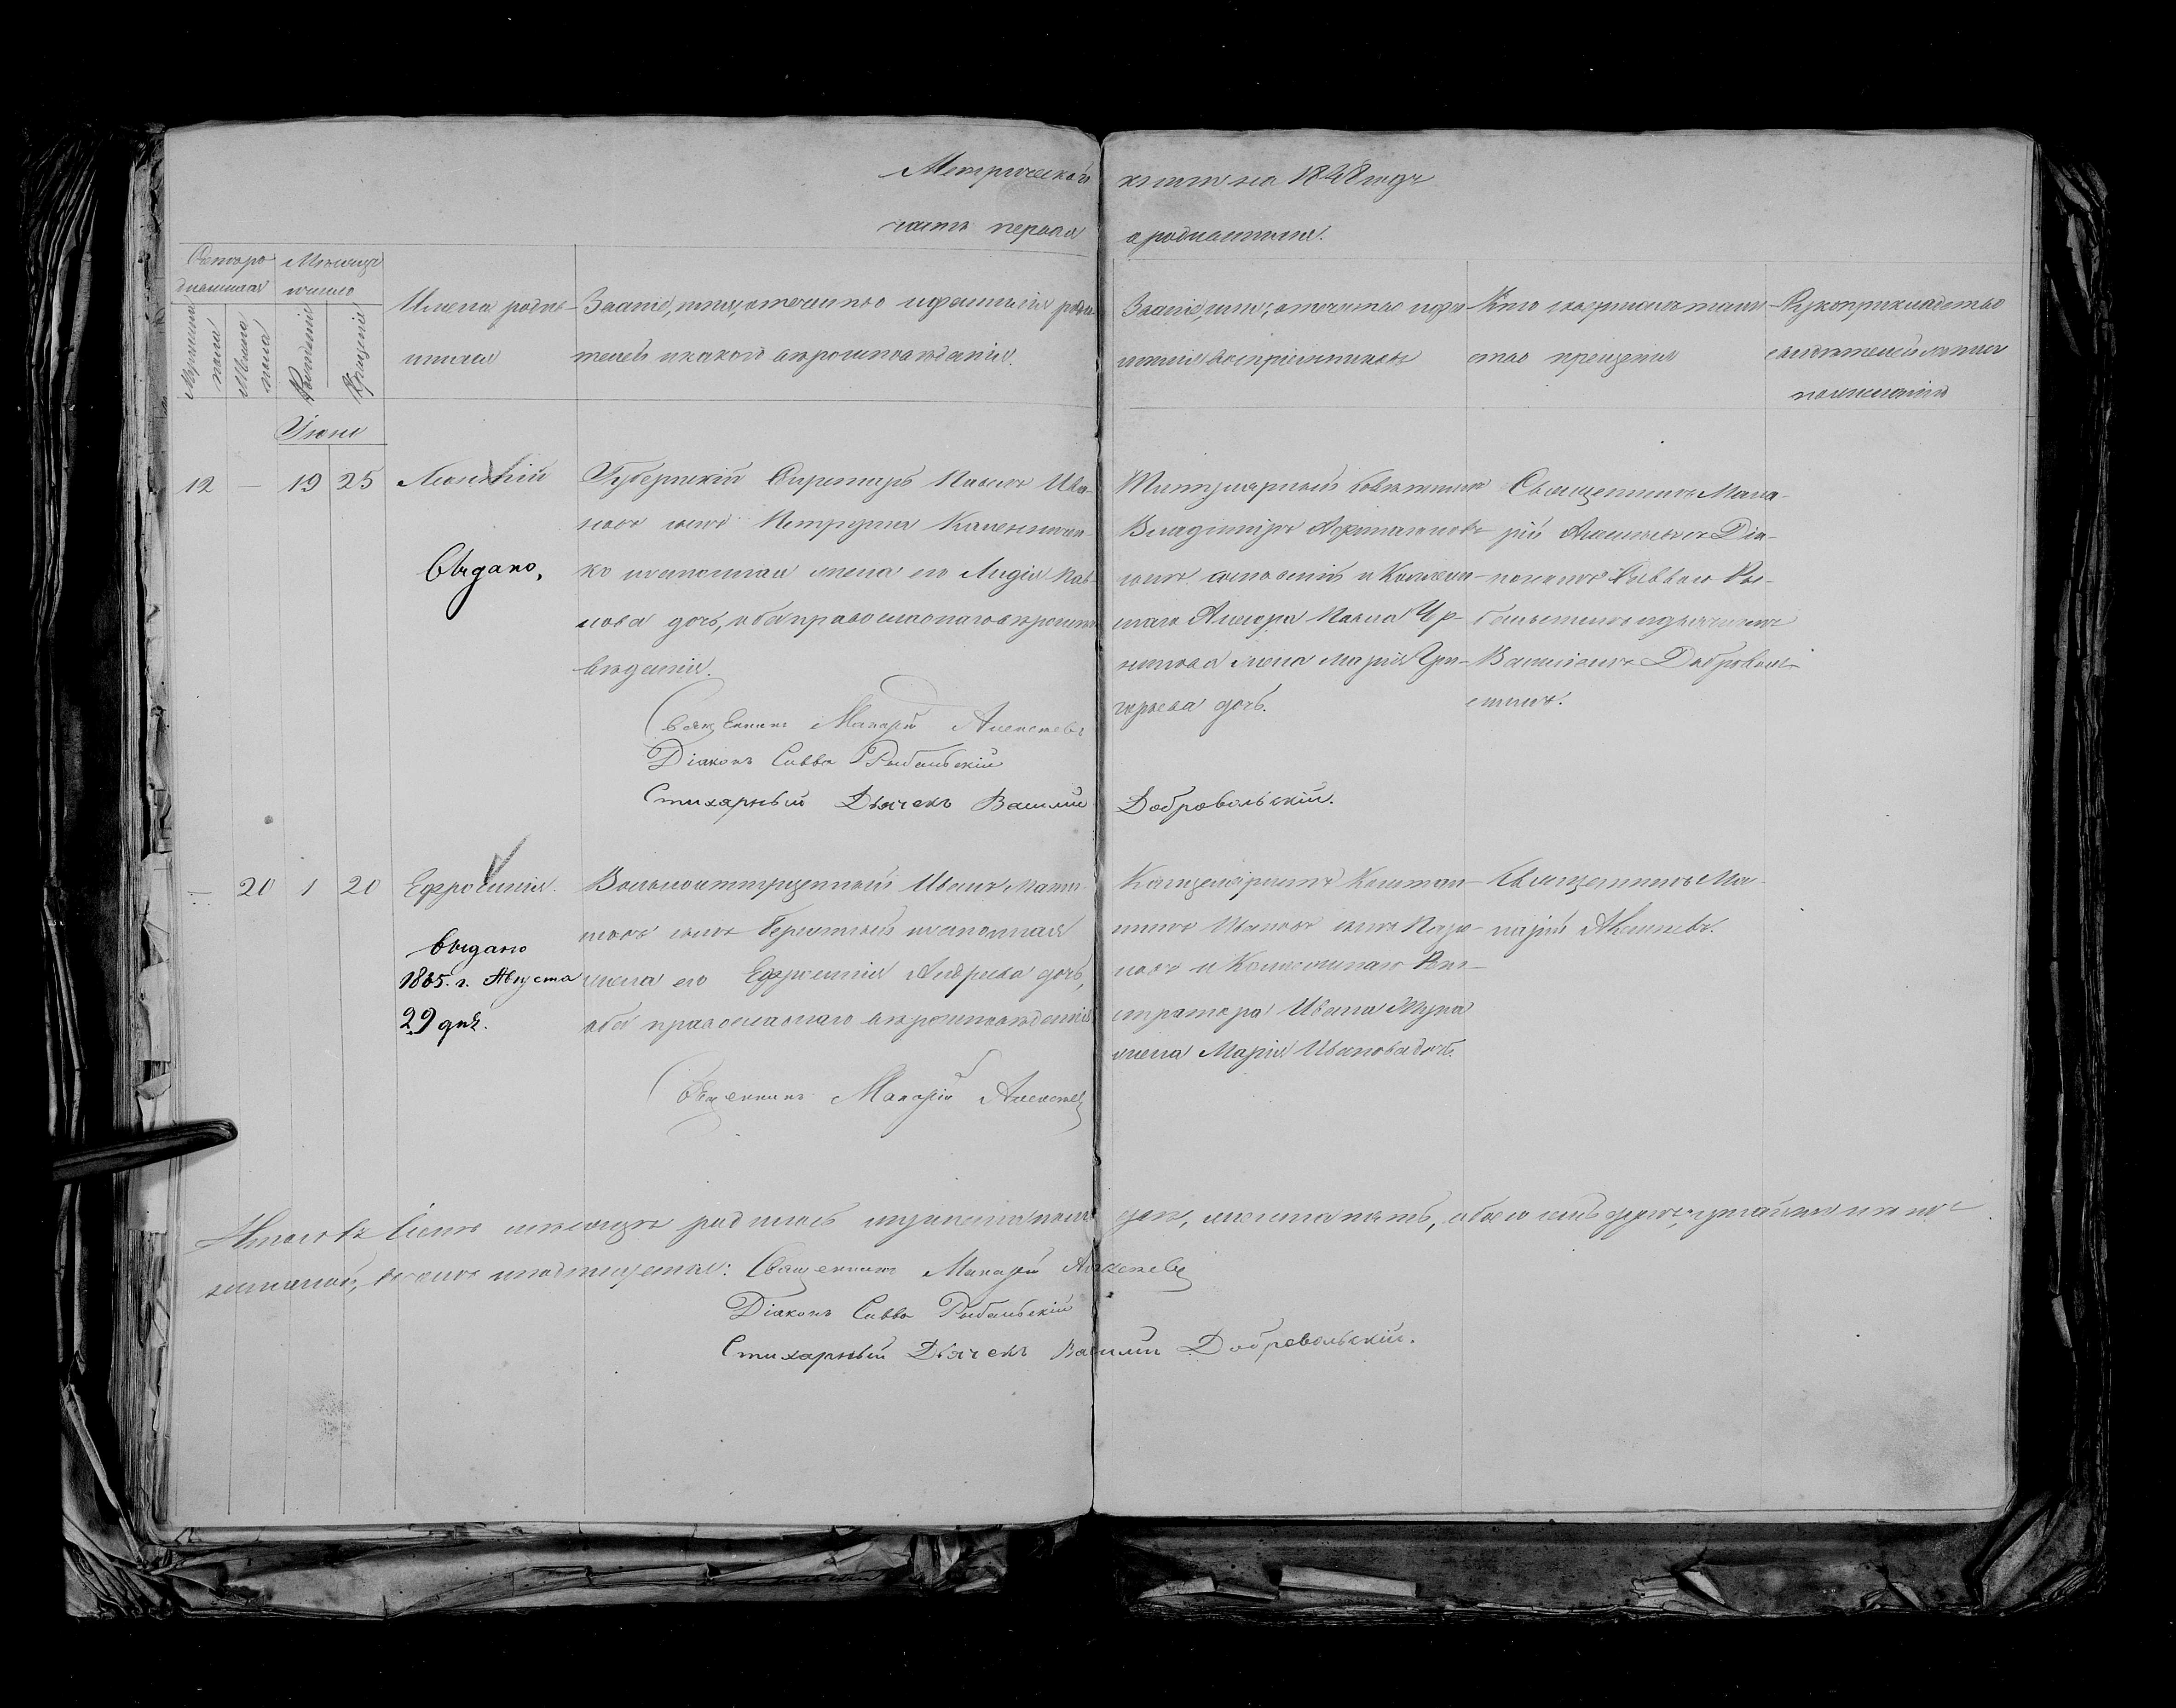 Метрической книги на 1848 годъ
часть первая о родившихся.
Счетъ ро
дившихся
Мѣсяцъ
и число
Мужеска
пола
Женска
пола
Рожденія
Крещенія
Имена родив-
шихся
Званіе, имя, отчество и фамилія роди-
телей и какого вѣроисповѣданія.
Званіе, имя, отчество и фа-
милія воспріемниковъ
Кто совершалъ таин-
ство крещенія
Рукоприкладство
свидѣтелей записи
по желанію
Іюнь
12 — 19 25
Губернскій Секретарь Павелъ Ива-
новъ сынъ
и законная жена его Лидія Пав-
лова дочь, оба православнаго вѣроиспо-
вѣданія.
Выдано.
Титулярный Совѣтникъ
Владиміръ
сынъ и Коллеж-
скаго Ассесора Павла
жена Марія Гри-
горьева дочь.
Священникъ Мака-
рій Алексѣевъ съ Діа-
кономъ Саввою Ры-
бальскимъ и дьячкомъ
Василіемъ Доброволь-
скимъ.
Священникъ Макарій Алексѣевъ
Діаконъ Савва Рыбальскій
Стихарный Дьячекъ Василій Добровольскій.
— 20 1 20
Ефросинія.
Выдано
1865. г. Августа
29 дня.
Вольноотпущенный Иванъ
сынъ и законная
жена его Ефросинія Андреева дочь,
оба православнаго вѣроисповѣданія
Канцеляристъ Констан-
тинъ Ивановъ сынъ
и Коллежскаго Реги-
стратора Ивана
жена Марія Иванова дочь.
Священникъ Ма-
карій Алексѣевъ.
Священникъ Макарій Алексѣевъ
Итого въ Іюнѣ мѣсяцѣ родилось мужеска пола два, женска пять, обоего семь душъ,
Священникъ Макарій Алексѣевъ
Діаконъ Савва Рыбальскій
Стихарный Дьячекъ Василій Добровольскій.